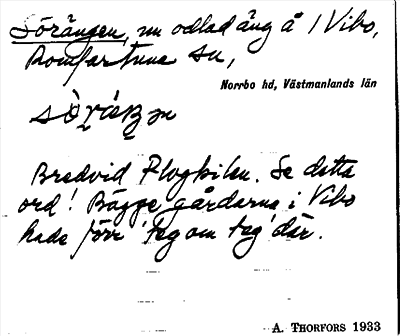 Sörängen, nu odlad äng å 1 Vibo,
Romfartuna sn,
Norrbo hd, Västmanlands län
Bredvid Plogkilen. Se detta
ord! Bägge gårdarna i Vibo
hade förr 'teg om teg' där.
A. THORFORS 1933